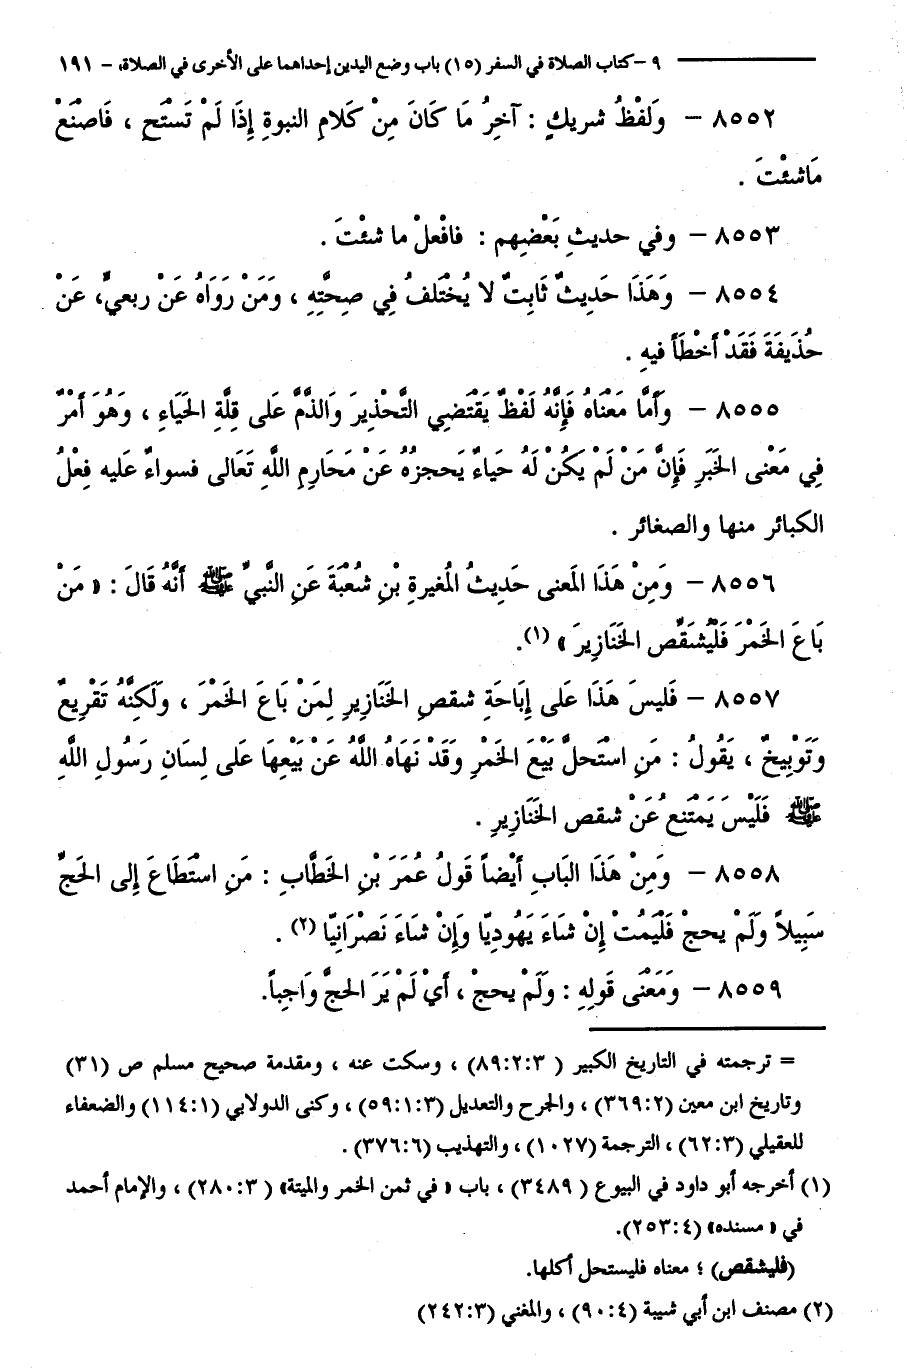 ٩ - كتاب الصلاة في السفر (١٥) باب وضع اليدين إحداهما على الأخرى في الصلاة، - ١٩١
٨٥٥٢ - وَلَفْظُ شريكٍ : آخِرُ مَا كَانَ مِنْ كَلامِ النبوةِ إِذَا لَمْ تَسْتَحِ ، فَاصْنَعْ
مَاشئْتَ .
٨٥٥٣ - وفي حديثِ بَعْضِهم : فافْعلْ ما شئْتَ .
٨٥٥٤ - وَهَذَا حَديثٌ ثَابِتٌ لا يُخْتَلفُ فِي صِحتَّهِ ، وَمَنْ رَوَاهُ عَنْ ربعيٍّ، عَنْ
حُذَيفَةَ فَقَدْ أخْطَأَ فيهِ .
٨٥٥٥ - وَأَمَّا مَعْنَاهُ فَإِنَّهُ لَفْظٌ يَقْتَضِي التَّحْذيرَ وَالذَّمَّ عَلى قِلَّةِ الحَيَاءِ ، وَهُوَ أَمْرٌ
فِي مَعْنى الخَبَرِ فَإِنَّ مَنْ لَمْ يَكُنْ لَهُ حَياءٌ يَحجزُهُ عَنْ مَحَارِمِ اللَّهِ تَعَالى فسواءٌ عَليه فِعْلُ
الكبائر منها والصغائر .
٨٥٥٦ - وَمِنْ هَذَا المَعنى حَديثُ المُغيرةِ بْنِ شُعْبَةَ عَنِ النَّبيِّ ﷺ أَنَّهُ قَالَ : « مَنْ
بَاعَ الخَمْرَ فَلْيُشَقِّص الخَنَازِيرَ » (١).
٨٥٥٧ - فَليسَ هَذَا عَلى إِبَاحَةِ شقصِ الخَنَازِيرِ لِمَنْ بَاعَ الخَمْرَ ، وَلَكِنَّهُ تَقْرِيعٌ
وَتَوْبِيخٌ ، يَقُولُ : مَنِ اسْتَحلَّ بَيْعَ الخَمْرِ وَقَدْ نَهَاهُ اللَّهُ عَنْ بَيْعِهَا عَلى لِسَانِ رَسُولِ اللَّهِ
ﷺ فَلَيْسَ يَمْتَنعُ عَنْ شقصِ الخَنَازِيرِ .
٨٥٥٨ - وَمِنْ هَذَا البَابِ أَيْضاً قَولُ عُمَرَ بْنِ الخَطَّابِ : مَنِ اسْتَطَاعَ إِلى الحَجِّ
سَبِيلاً وَلَمْ يحجْ فَلْيَمُتْ إِنْ شَاءَ يَهُودِيّا وَإِنْ شَاءَ نَصْرَانِيّا (٢) .
٨٥٥٩ - وَمَعْنَى قَولِهِ : وَلَمْ يحجْ ، أَيْ لَمْ يَرَ الحَجَّ وَاجِباً.
= ترجمته في التاريخ الكبير ( ٣:٢:٨٩) ، وسكت عنه ، ومقدمة صحيح مسلم ص (٣١)
وتاريخ ابن معين (٢:٣٦٩) ، والجرح والتعديل (٣:١:٥٩) ، وكنى الدولابي (١:١١٤) والضعفاء
للعقيلي (٣:٦٢) ، الترجمة (١٠٢٧) ، والتهذيب (٦:٣٧٦) .
(١) أخرجه أبو داود في البيوع ( ٣٤٨٩) ، باب « في ثمن الخمر والميتة» ( ٣:٢٨٠) ، والإمام أحمد
في « مسنده» (٤:٢٥٣).
(فليشقص) ؛ معناه فليستحل أكلها.
(٢) مصنف ابن أبي شيبة (٤:٩٠) ، والمغني (٣:٢٤٢)